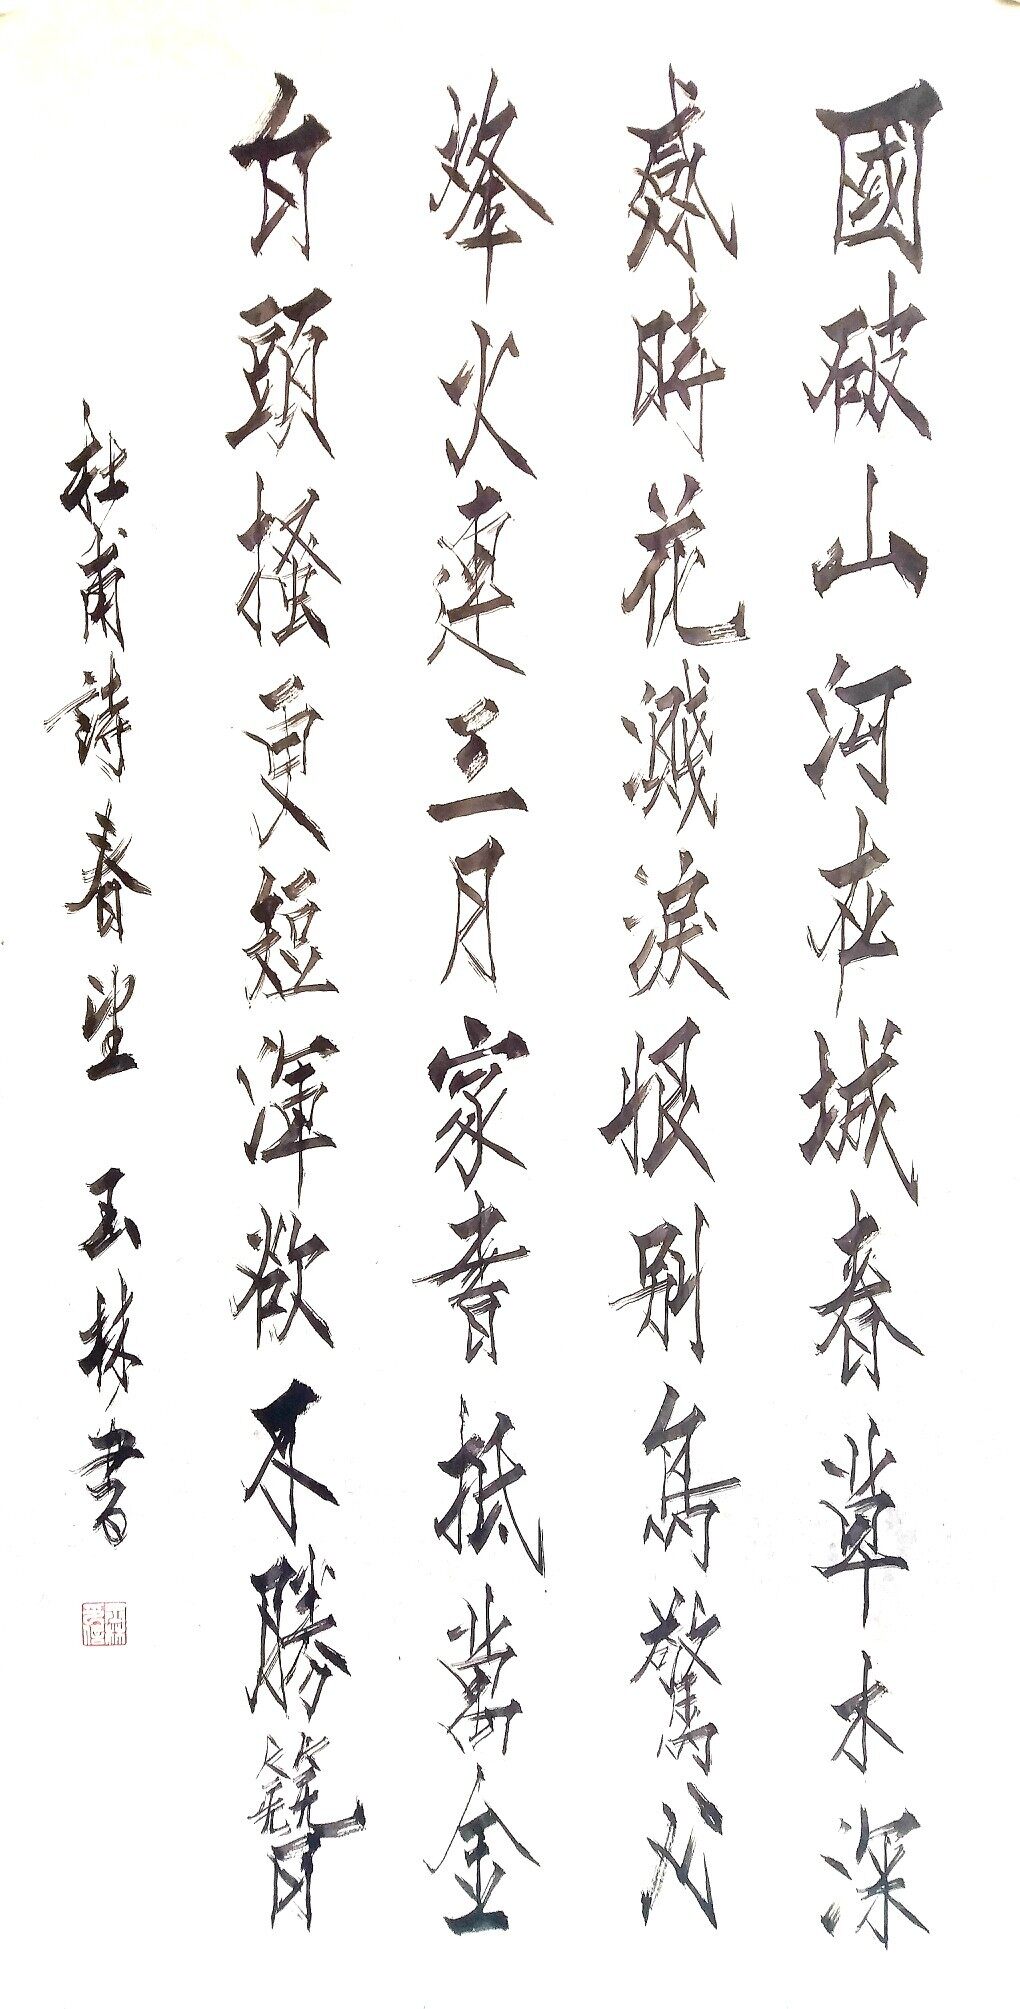 國破山河在城春草木深
感時花濺淚恨別鳥驚心
烽火連三月家書抵萬金
白頭搔更短渾欲不勝簪
杜甫詩春望 玉林書